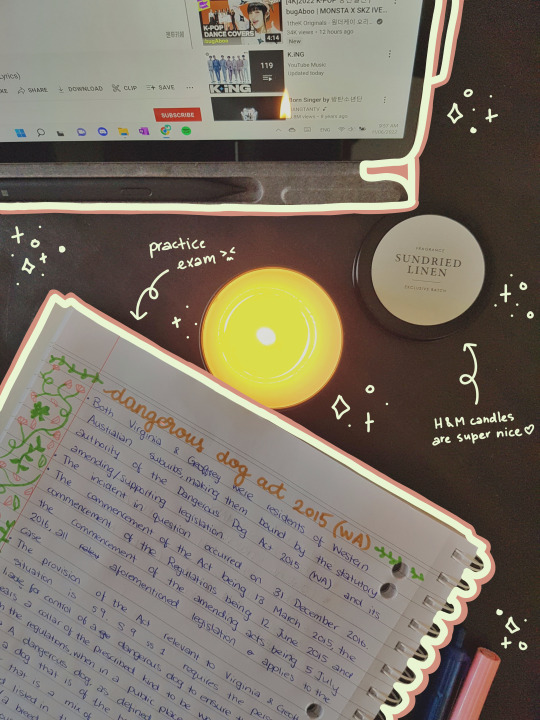 bugAboo | MONSTA X SKZ IVE...
ItheK Originals - 원더케이 오리...
54K views • 12 hours ago
New
K-POP
DANCE COVERS
bugAboo
4:14
K.ING
YouTube Music
Updated today
119
K.ING
SHARE
DOWNLOAD
CLIP
SAVE
...
SUBSCRIBE
Singer by 방탄소년단
BANGTANTV
4 years ago
FRAGRANCE
SUNDRIED
LINEN
EXCLUSIVE BATCH
practice
exam ><
H&M candles
are super nice♡
dangerous dog act 2015 (WA)
• Both Virginia & Geoffrey were residents of Western
Australian suburbs, making them bound by the statutory
authority of the Dangerous Dog Act 2015 (WA) and its
amending/supporting legislation
• The incident in question occurred on 31 December 2016.
The commencement of the Act being 13 March 2015, the
commencement of the Regulations being 12 June 2015 and
the commencement of the amending acts being 5 July
2016, all aforementioned legislation applies to the
case
• The provision of the Act relevant to Virginia &
situation is s9. s9 requires the
liable for control of a dangerous dog to ensure
a collar of the prescribed kind to be
the regulations, when in a public place
A dangerous dog, as defined
a dog that is of the
that is a mix of
listed in